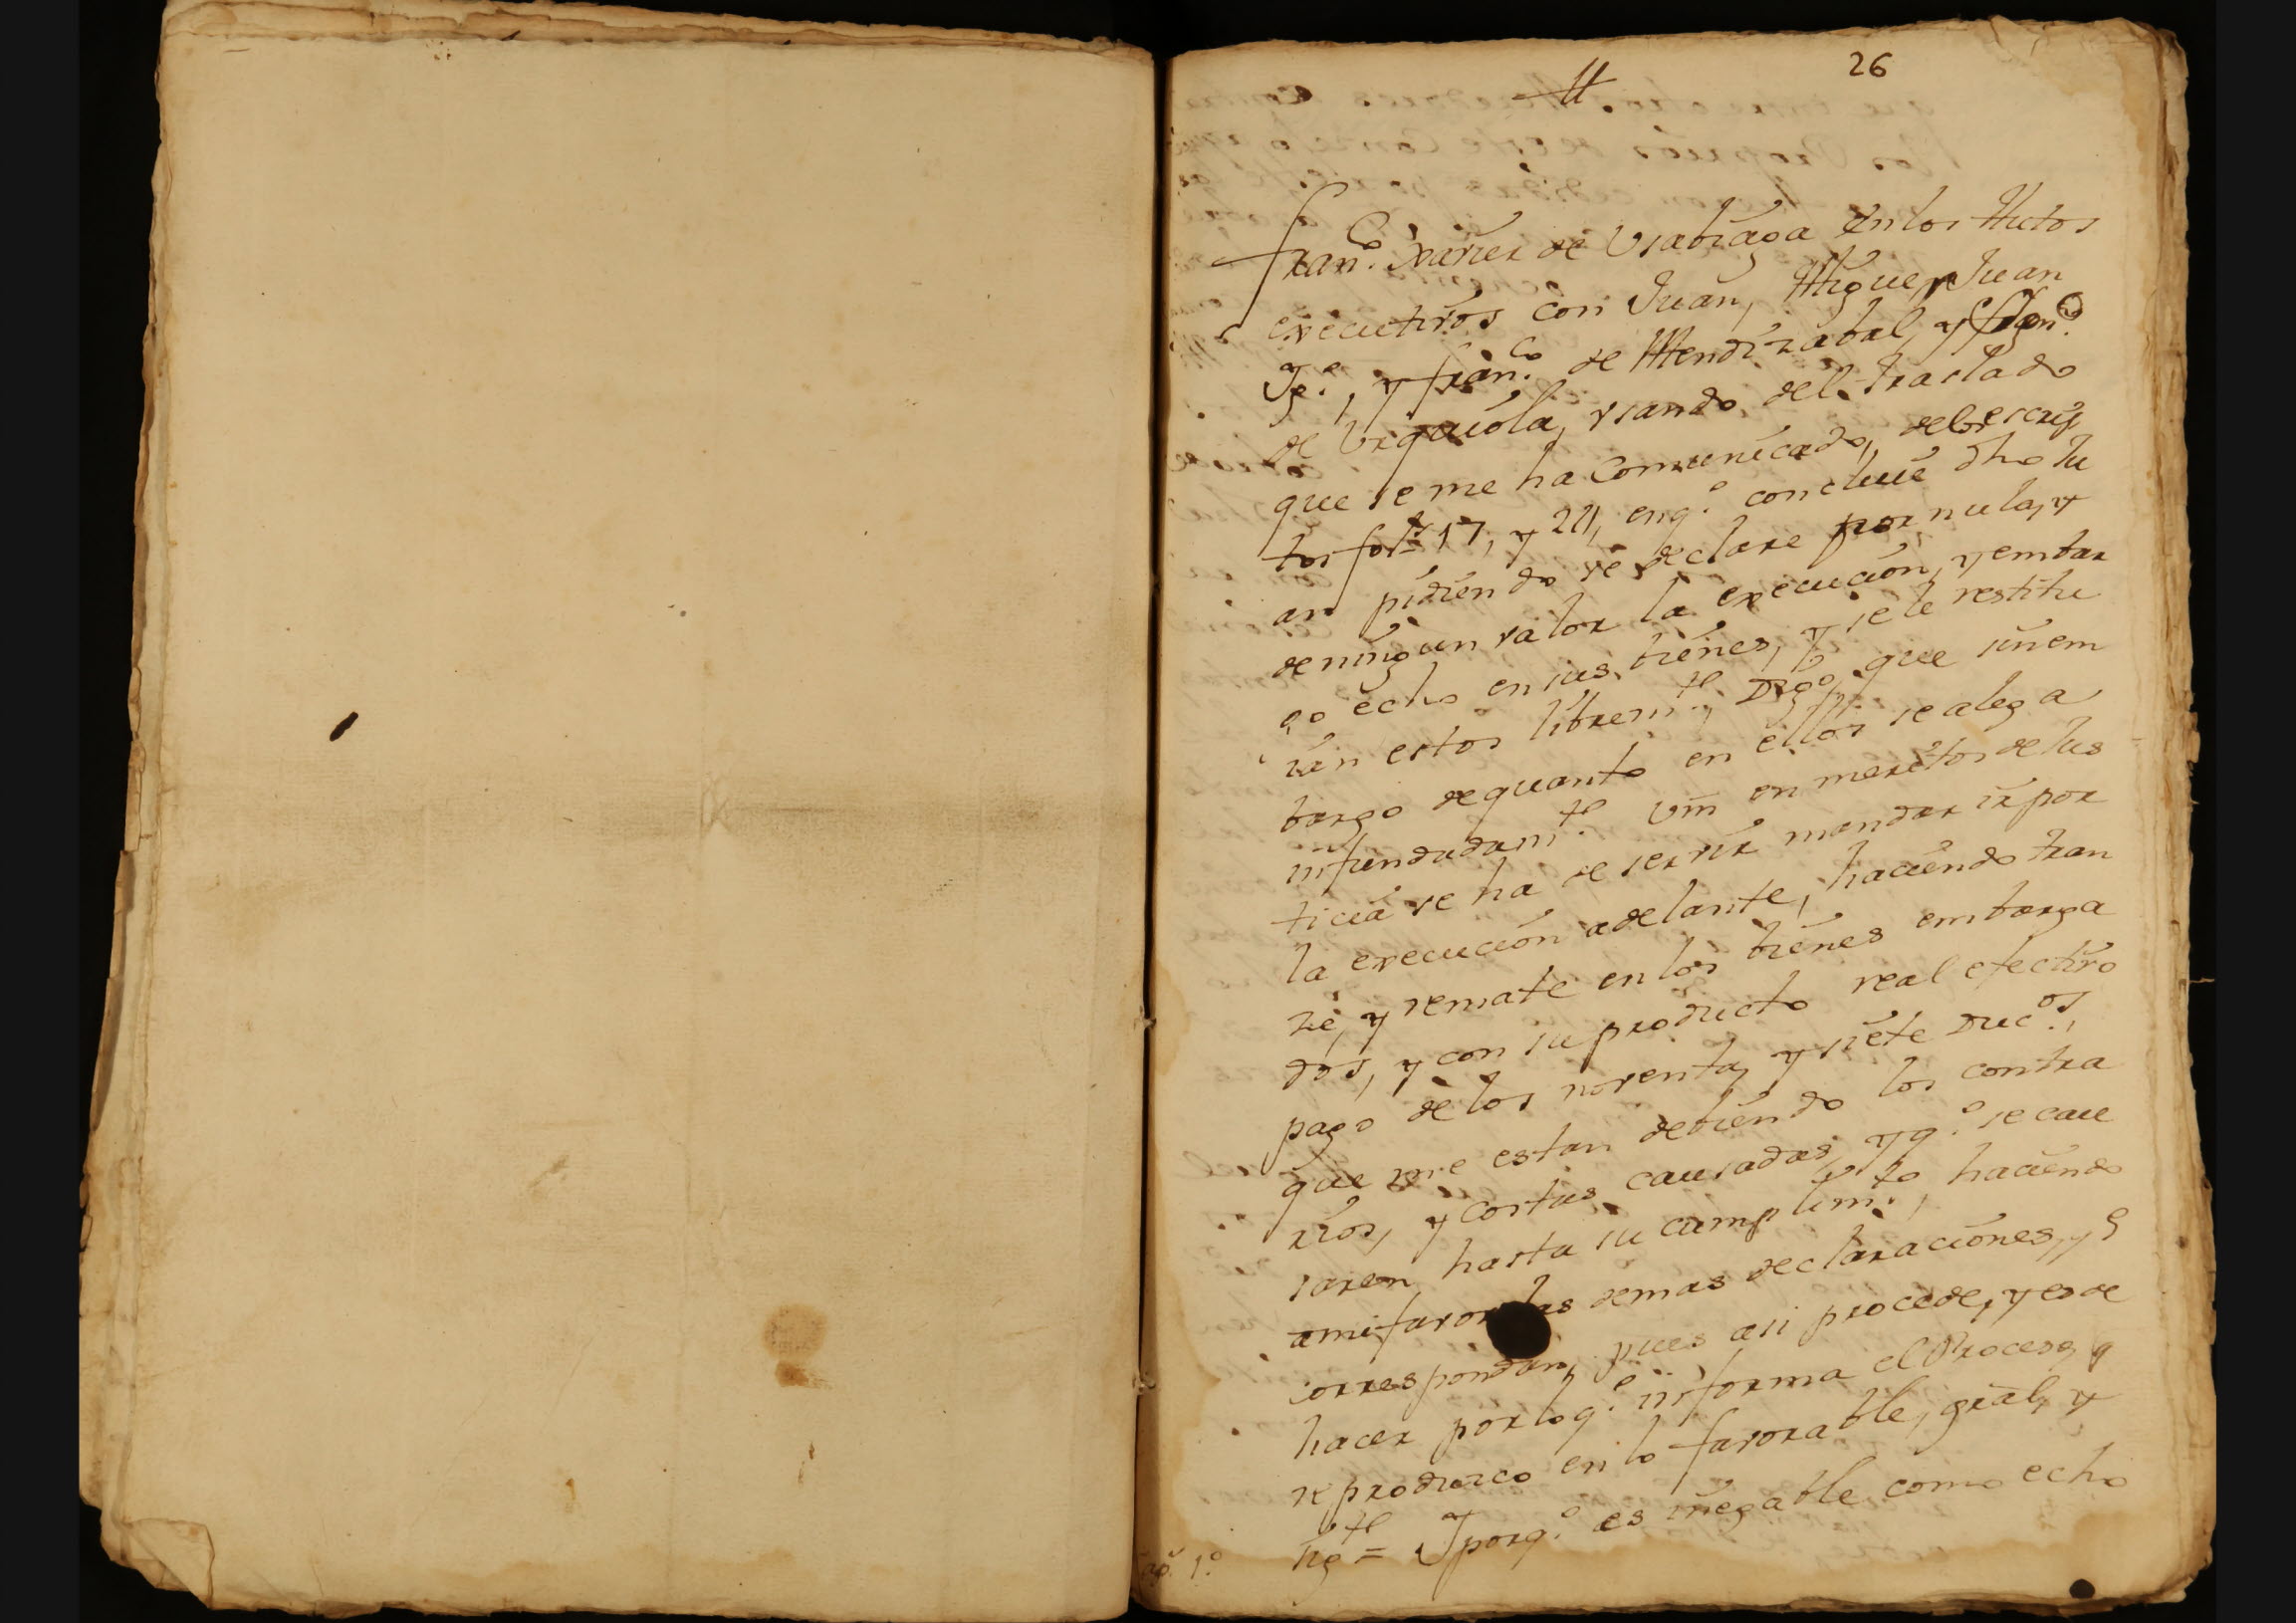 26
Fran.co Xavier de Usabiaga en los Autos
executivos con Juan, Miguel, Juan
Jph.e, y Fran.co de Mendizabal, y Fran.co
de Urquiola, usando del traslado
que se me ha Comunicado, de los escrip
tos fol.s 17, y 21, en q.e concluie dho Ju
an pidiendo se declare por nula, y
de ningun valor la execucion, y embar
go echo en sus bienes, y se le restitu
ian estos librem.te Digo, que sin em
bargo de quanto en ellos se alega
infundadam.te Vm en meritos de Jus
ticia se ha de servir mandar ir por
la execucion adelante, haciendo tran
ze, y remate en los bienes embarga
dos, y con su producto real efectivo
pago de los noventa, y siete Duc.os,
que me estan debiendo los contra
rios, y costas causadas, y q.e se cau
saren hasta su cumplim.to, haciendo
a mi favor las demas declaraciones, y q
correspondan, pues asi procede, y es de
hacer por lo q.e informa el Proceso, q
reproduzco en lo favorable, gral, y
sig.te = Y porq.e es inegable como echo
1.o